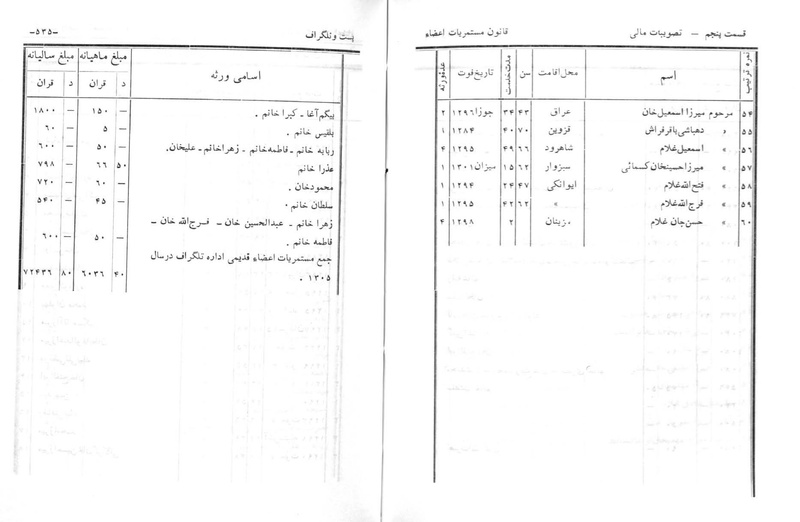 قسمت پنجم — تصویبات مالی
قانون مستمریات اعضاء
نمره ترتیب | اسم | محل اقامت | سن | مدت خدمت | تاریخ فوت | عده ورثه
۵۴ مرحوم میرزا اسمعیل خان | عراق | ۴۳ | ۳۴ | جوزا ۱۲۹۶ | ۲
۵۵ » دهباشی باقر فراش | قزوین | ۷۰ | ۴۰ | ۱۲۸۴ | ۱
۵۶ » اسمعیل غلام | شاهرود | ۶۶ | ۴۹ | ۱۲۹۵ | ۴
۵۷ » میرزا حسینخان کسمائی | سبزوار | ۶۲ | ۱۵ | میزان ۱۳۰۱ | ۱
۵۸ » فتح الله غلام | ایوانکی | ۴۷ | ۲۴ | ۱۲۹۴ | ۱
۵۹ » فرج الله غلام | » | ۶۲ | ۴۲ | ۱۲۹۵ | ۱
۶۰ » حسن جان غلام | مزینان | ۲ | ۱۲۹۸ | ۴
پست وتلگراف
-۵۳۵-
اسامی ورثه | مبلغ ماهیانه | مبلغ سالیانه
د | قران | د | قران
بیگم آغا - کبرا خانم . | — | ۱۵۰ | — | ۱۸۰۰
بلقیس خانم . | — | ۵ | — | ۶۰
ربابه خانم - فاطمه خانم - زهرا خانم - علیخان. | — | ۵۰ | — | ۶۰۰
عذرا خانم | ۵۰ | ۶۶ | — | ۷۹۸
محمودخان . | — | ۶۰ | — | ۷۲۰
سلطان خانم . | — | ۴۵ | — | ۵۴۰
زهرا خانم - عبدالحسین خان - فرج الله خان -
فاطمه خانم . | — | ۵۰ | — | ۶۰۰
جمع مستمریات اعضاء قدیمی اداره تلگراف درسال
۱۳۰۵ . | ۴۰ | ۶۰۳۶ | ۸۰ | ۷۲۴۳۶